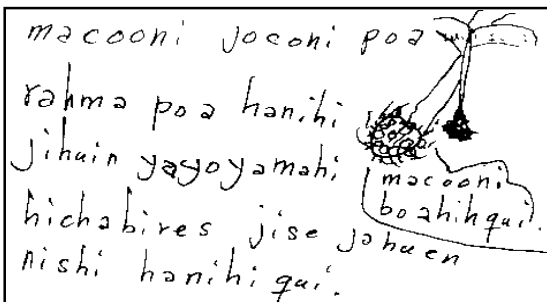 macooni joconi poa
rahma poa hanihi
jihuin yayoyamahi
hichabires jise jahuen
nishi hanihi qui.
macooni
boahihqui.